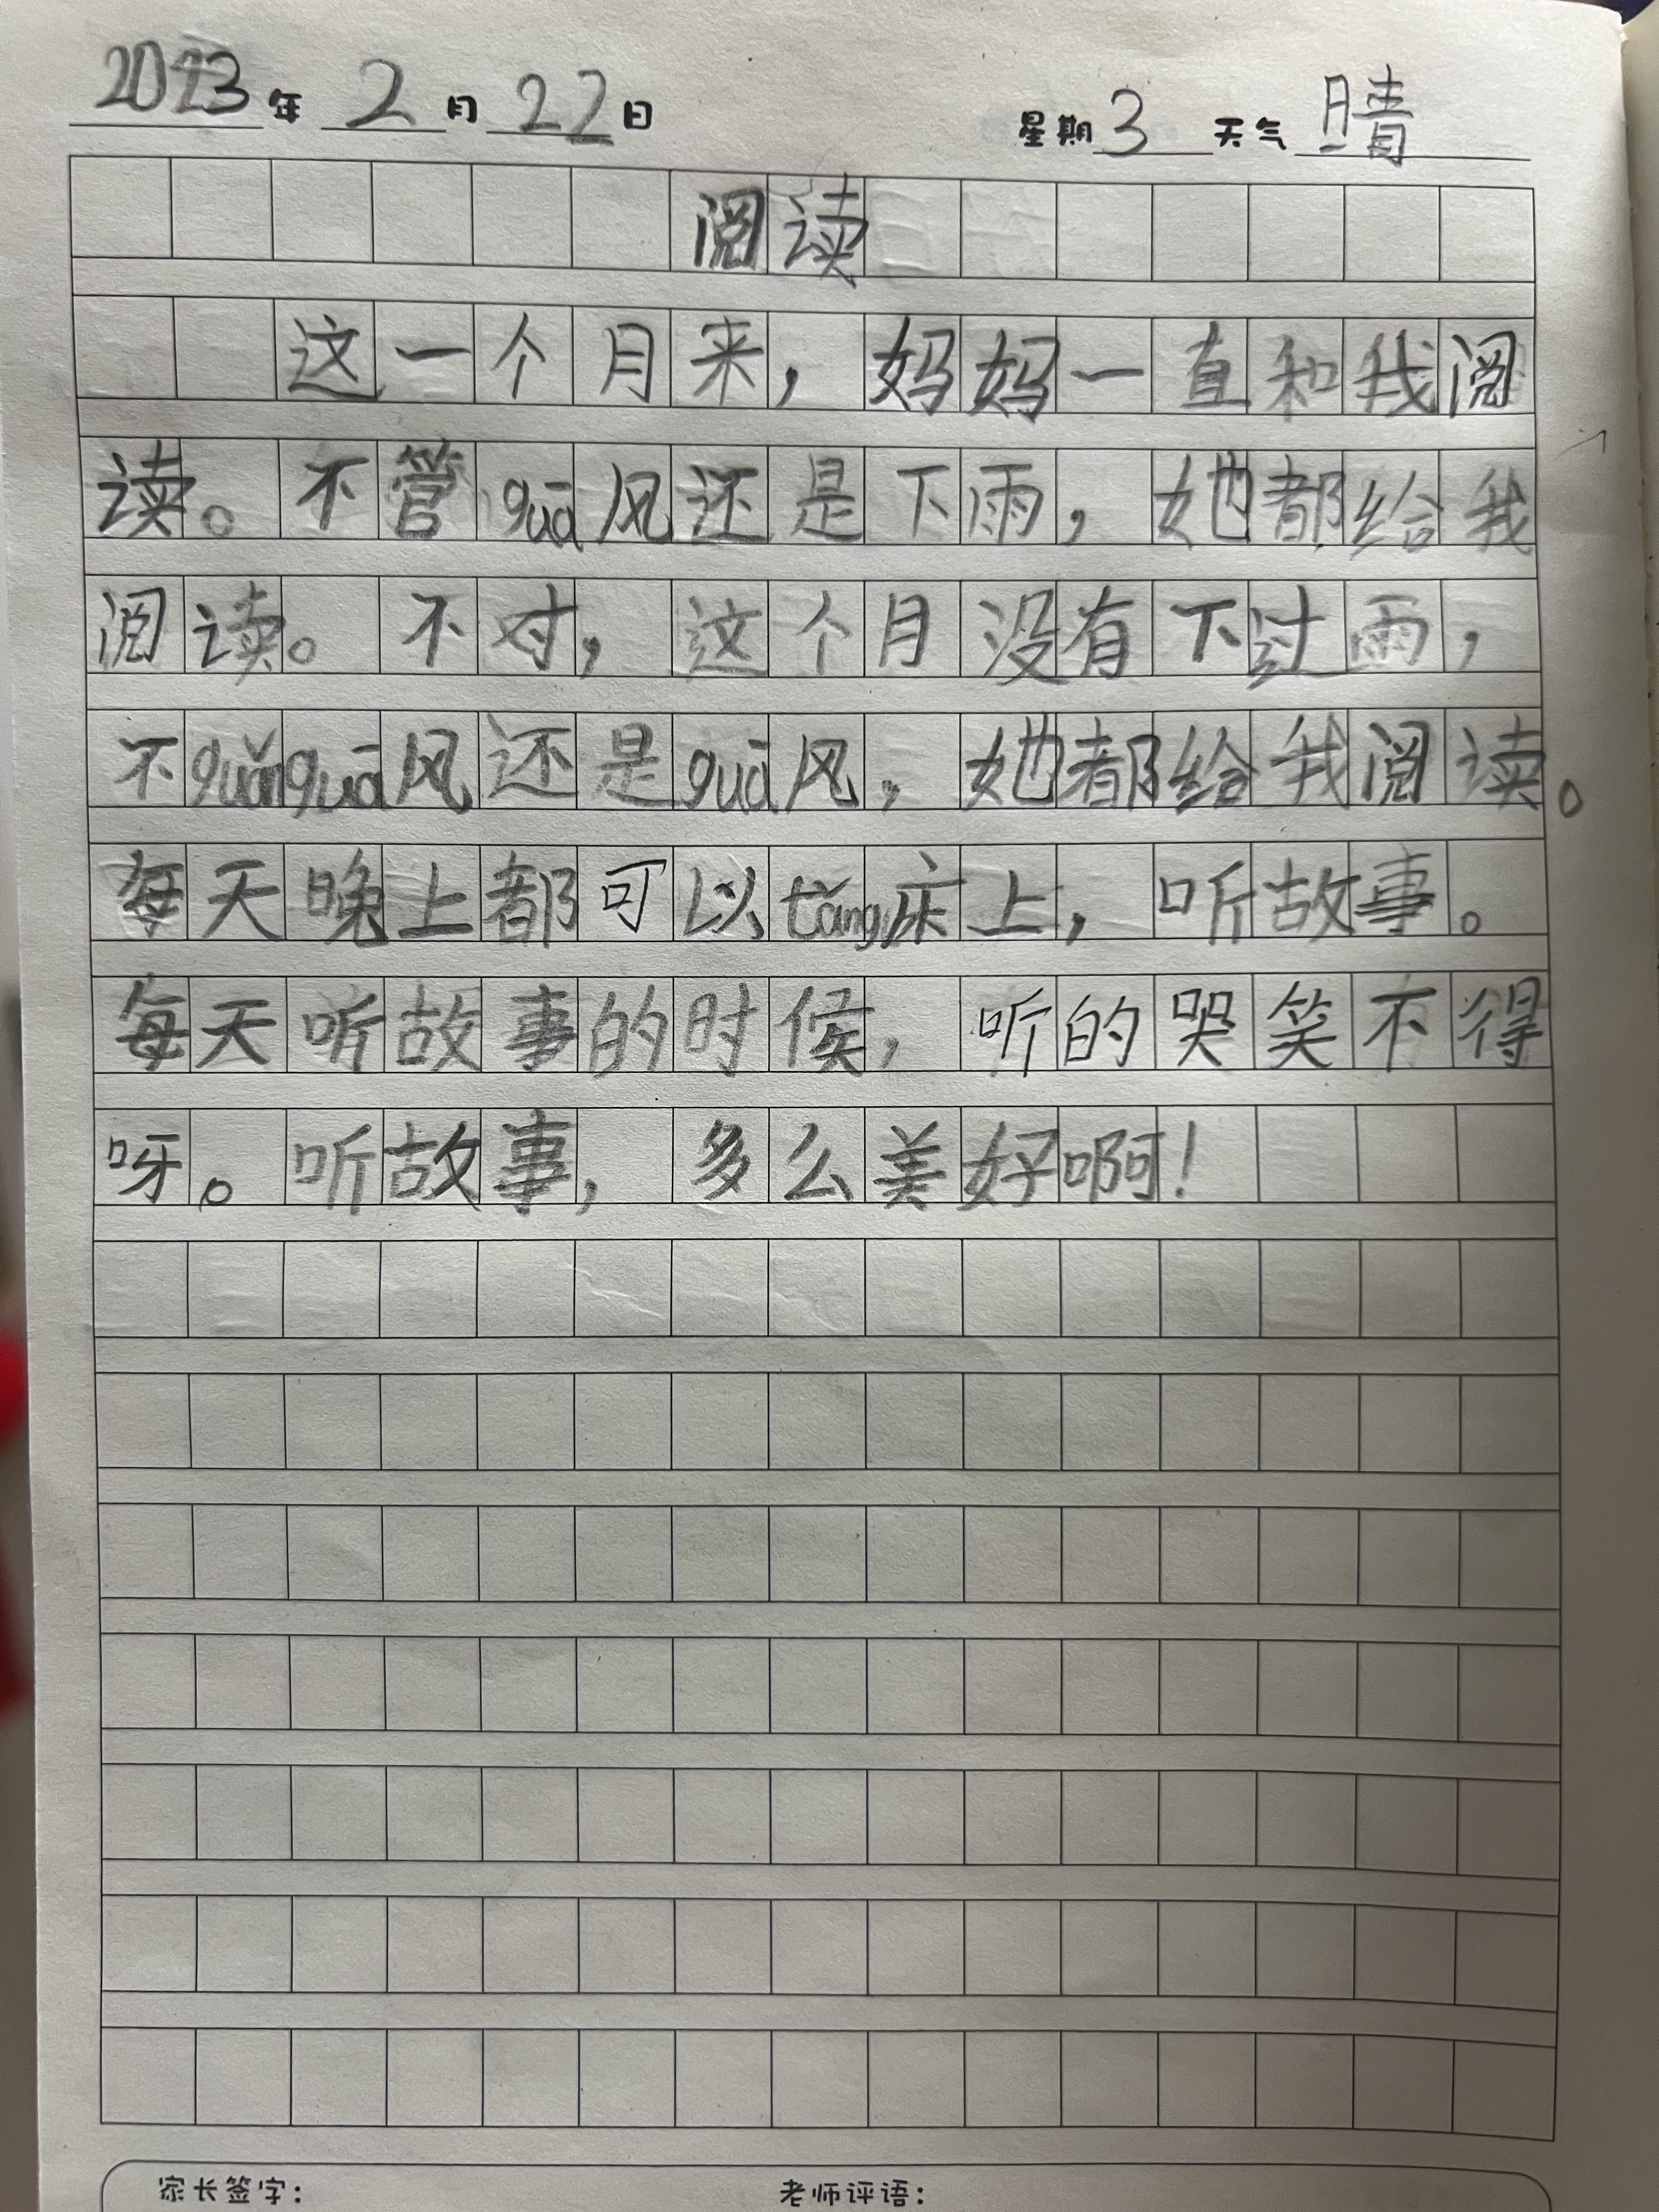 2023年 2月 22日 星期3 天气 晴
阅读
这一个月来，妈妈一直和我阅
读。不管guā风还是下雨，她都给我
阅读。不对，这个月没有下过雨，
不guǎnguā风还是guā风，她都给我阅读。
每天晚上都可以tǎng床上，听故事。
每天听故事的时候，听的哭笑不得
呀。听故事，多么美好啊！
家长签字： 老师评语：